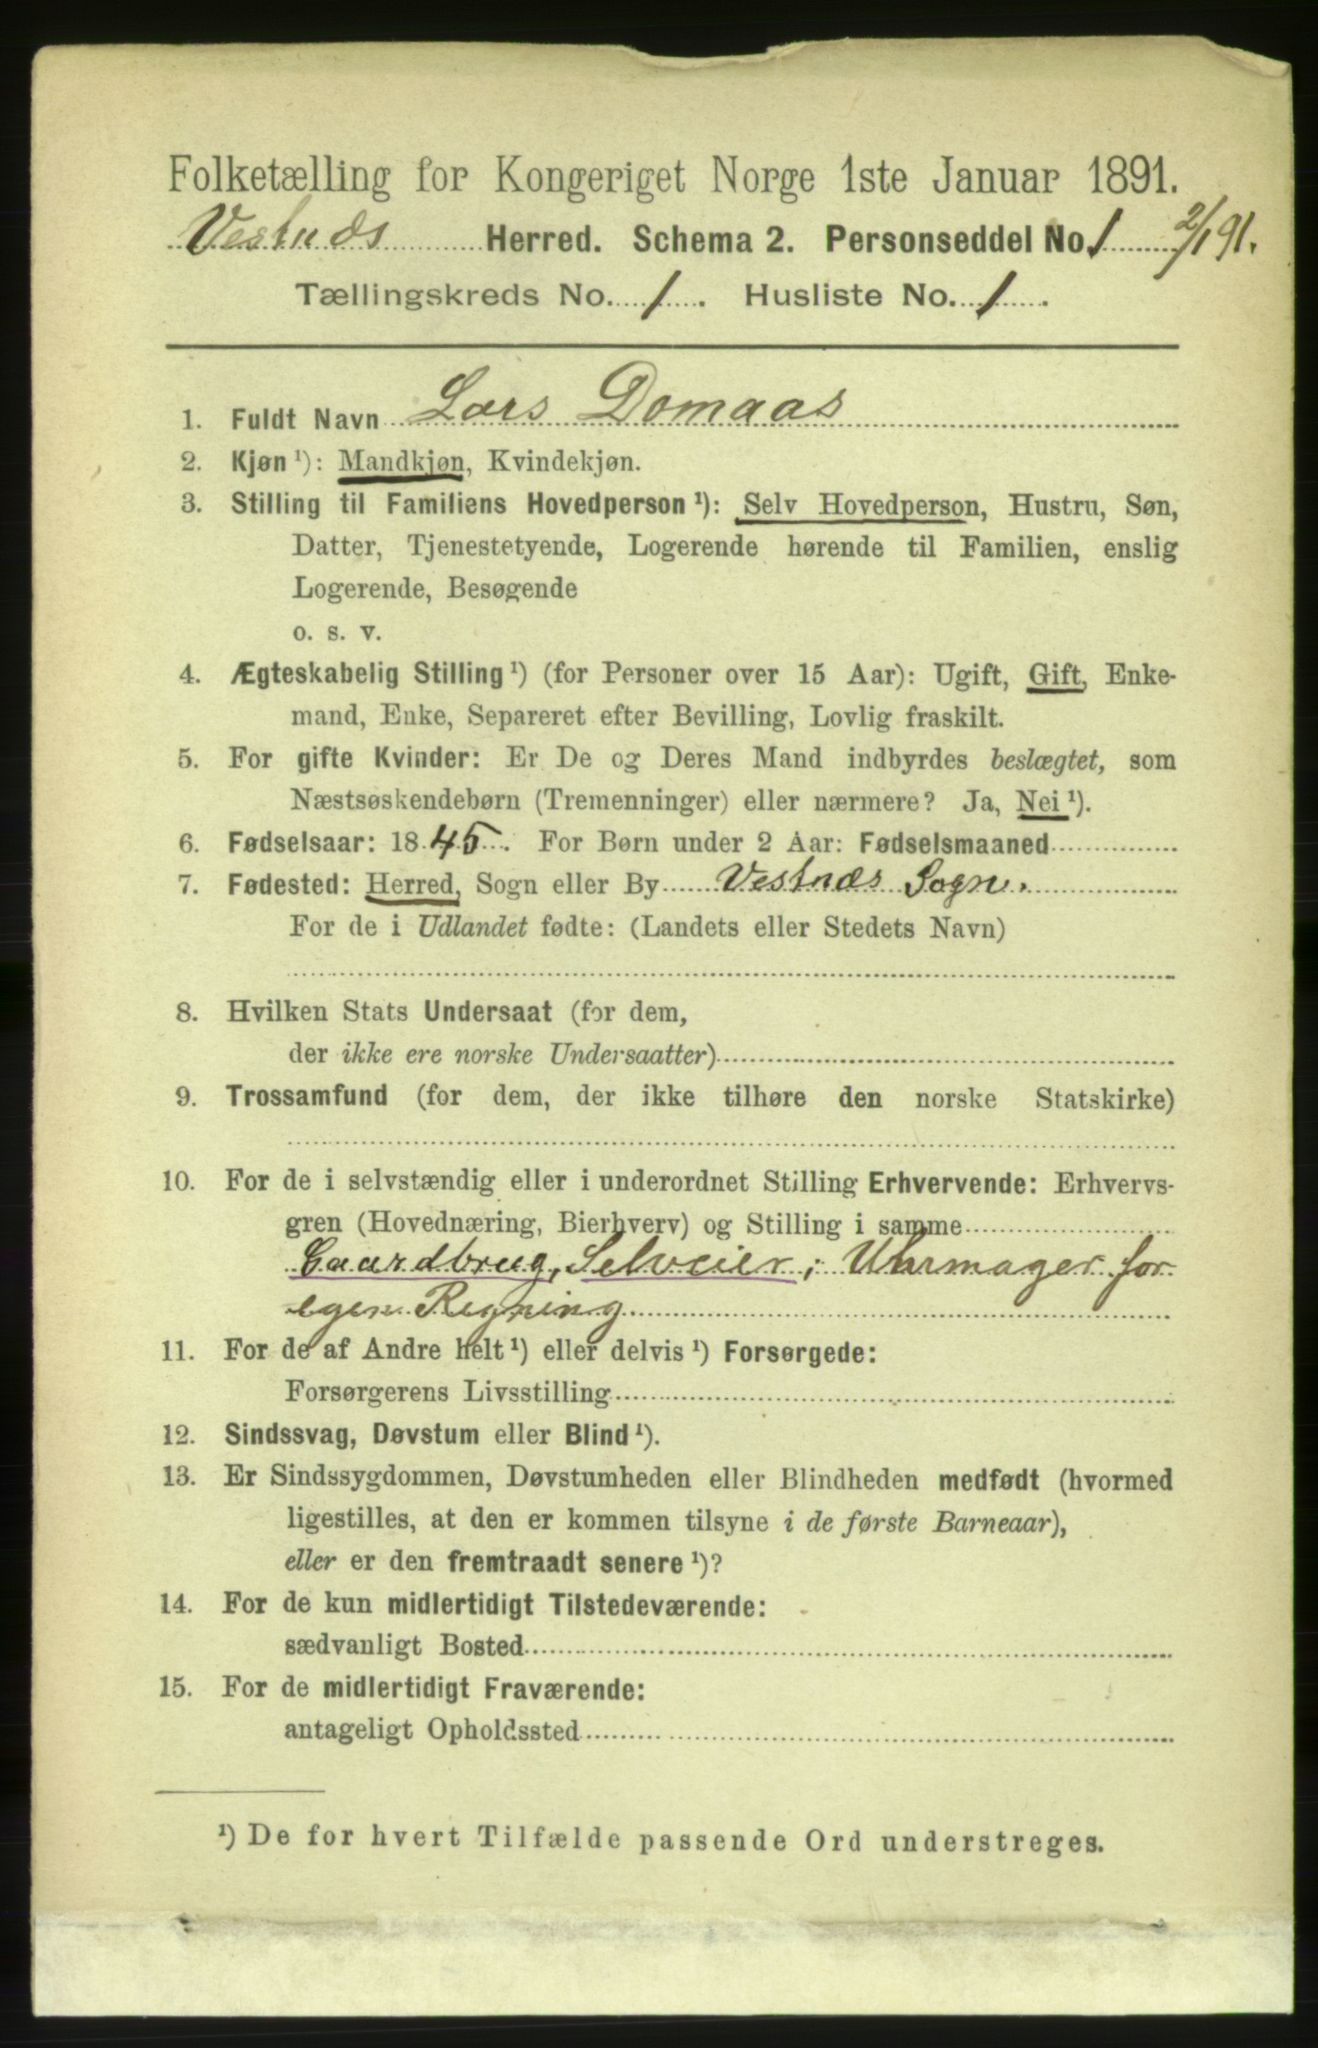 Folketælling for Kongeriget Norge 1ste Januar 1891.
Vestnæs Herred. Schema 2. Personseddel No. 1 2/1 91.
Tællingskreds No. 1. Husliste No. 1.
1. Fuldt Navn Lars Domaas
2. Kjøn ¹): Mandkjøn, Kvindekjøn.
3. Stilling til Familiens Hovedperson ¹): Selv Hovedperson, Hustru, Søn,
Datter, Tjenestetyende, Logerende hørende til Familien, enslig
Logerende, Besøgende
o. s. v.
4. Ægteskabelig Stilling ¹) (for Personer over 15 Aar): Ugift, Gift, Enke-
mand, Enke, Separeret efter Bevilling, Lovlig fraskilt.
5. For gifte Kvinder: Er De og Deres Mand indbyrdes beslægtet, som
Næstsøskendebørn (Tremenninger) eller nærmere? Ja, Nei ¹).
6. Fødselsaar: 1845. For Børn under 2 Aar: Fødselsmaaned
7. Fødested: Herred, Sogn eller By Vestnæs Sogn.
For de i Udlandet fødte: (Landets eller Stedets Navn)
8. Hvilken Stats Undersaat (for dem,
der ikke ere norske Undersaatter)
9. Trossamfund (for dem, der ikke tilhøre den norske Statskirke)
10. For de i selvstændig eller i underordnet Stilling Erhvervende: Erhvervs-
gren (Hovednæring, Bierhverv) og Stilling i samme
Gaardbrug, Selveier; Uhrmager for
egen Regning
11. For de af Andre helt ¹) eller delvis ¹) Forsørgede:
Forsørgerens Livsstilling
12. Sindssvag, Døvstum eller Blind ¹).
13. Er Sindssygdommen, Døvstumheden eller Blindheden medfødt (hvormed
ligestilles, at den er kommen tilsyne i de første Barneaar),
eller er den fremtraadt senere ¹)?
14. For de kun midlertidigt Tilstedeværende:
sædvanligt Bosted
15. For de midlertidigt Fraværende:
antageligt Opholdssted
¹) De for hvert Tilfælde passende Ord understreges.